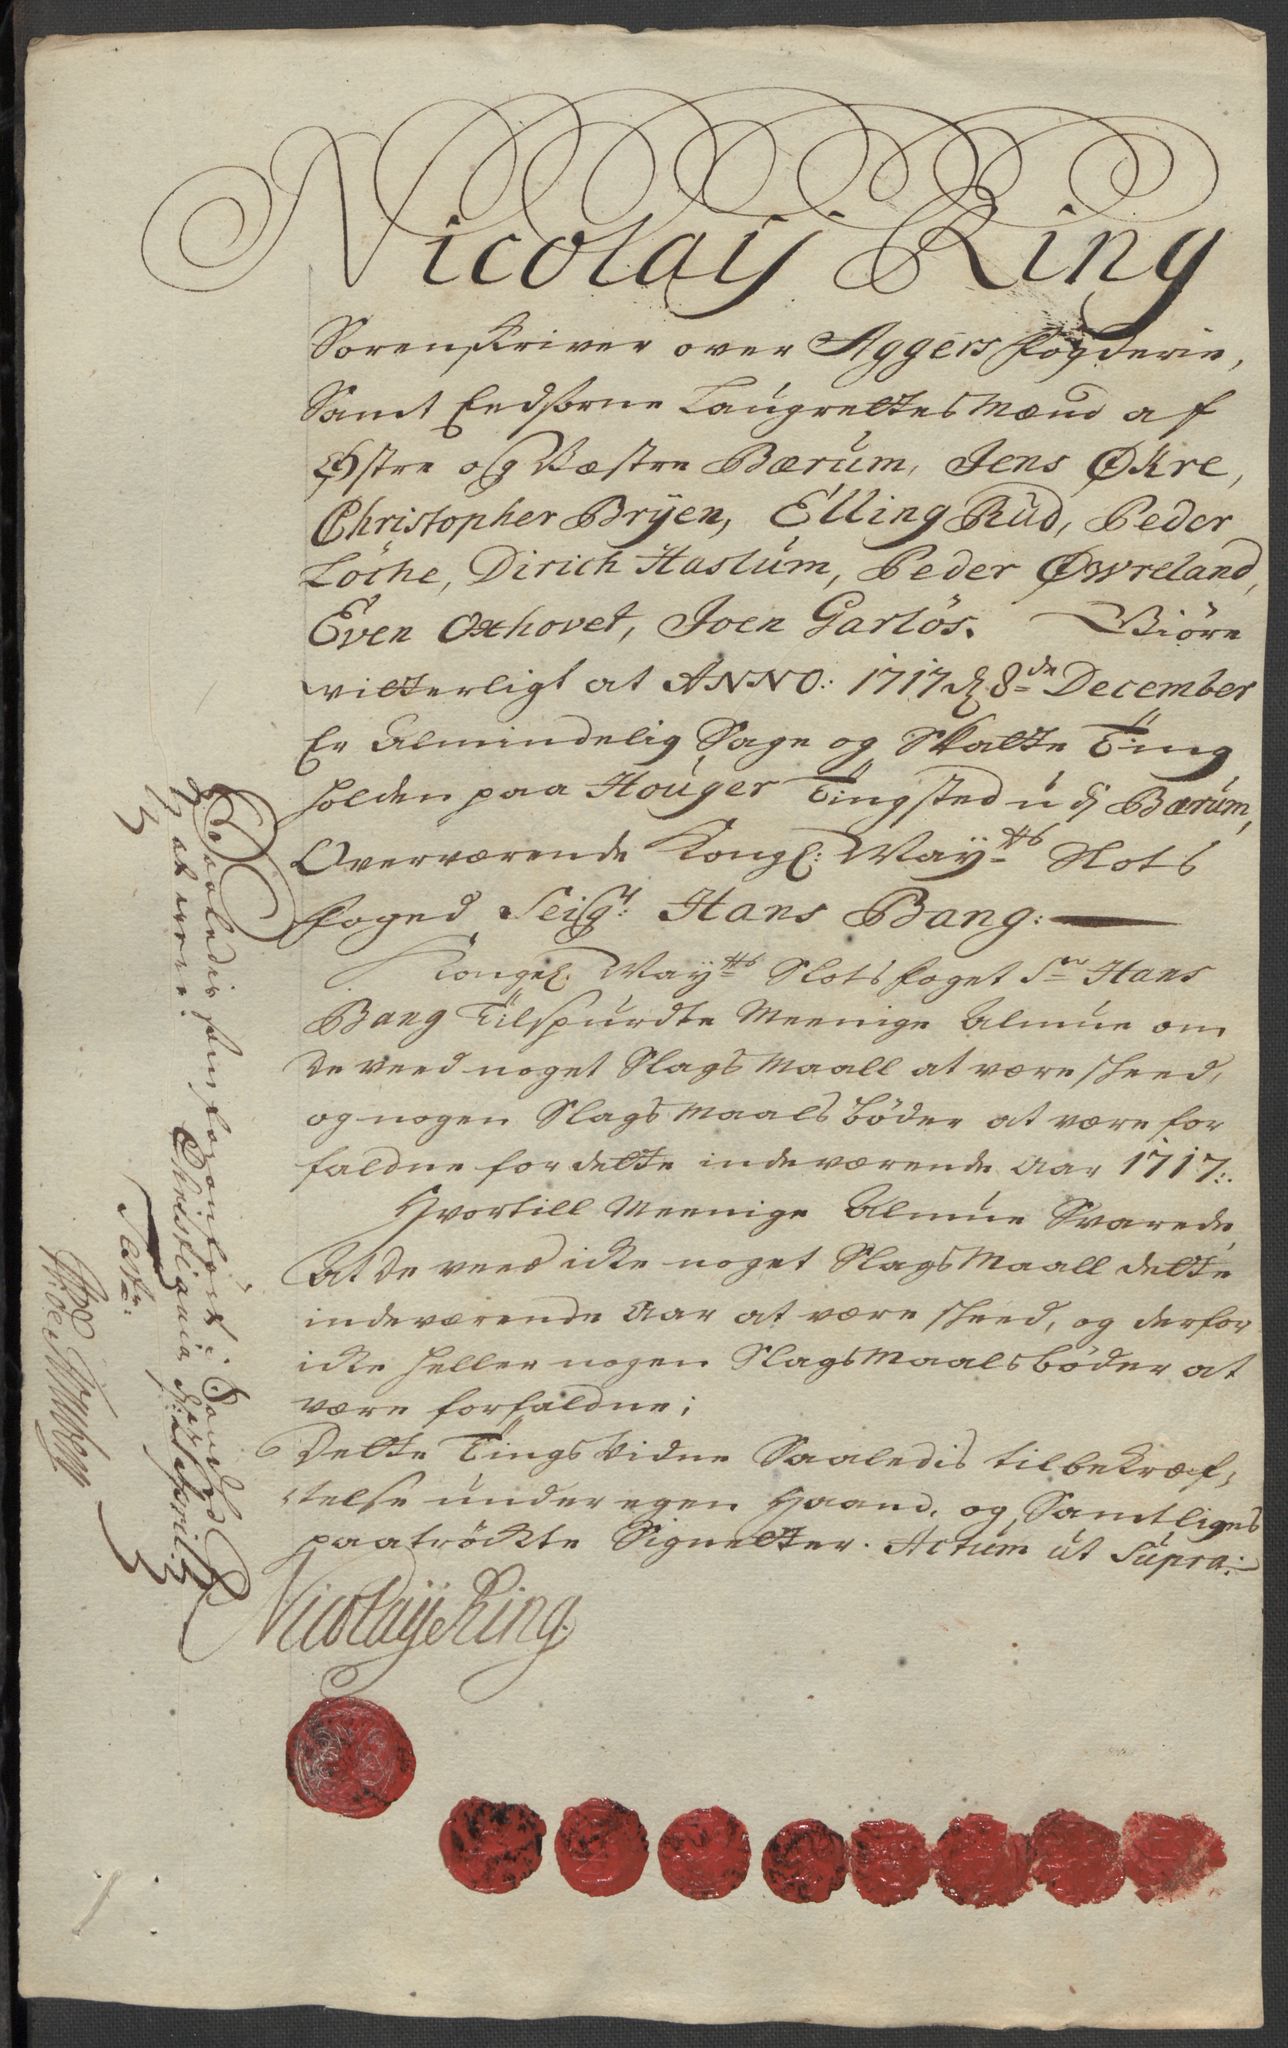 Nicolaij Ring
Sorenskriver over Aggers fogderie,
Samt Eedsorne Laugrettes Mænd af
Østre og Væstre Bærum, Jens Økre,
Christopher Brÿen, Elling Rud, Peder
Löche, Dirich Haslum, Peder Øwreland,
Even Oxhovet, Joen Garlös. Giöre
vitterligt at ANNO: 1717 d. 8de December
Er Almindelig Sage og Skatte Ting
holden paa Houger Tingsted udj Bærum,
Overværende Kongl: Mayts Slots
foged Seigr: Hans Bang:
Kongel. Mayts Slotsfoget Sr Hans
Bang Tilspurdte Meenige Almue om
de veed noget Slagsmaall at være skeed,
og nogen Slagsmaals bøder at være for
faldne for dette indeværende Aar 1717:.
Hvortill Meenige Almue Svarede,
At de veed icke noget Slagsmaall dette
indeværende Aar at være skeed, og derfor
icke heller nogen Slagsmaalsbøder at
være forfaldne;
Dette Tings Vidne Saaledis til bekræf,,
telse under egen Haand, og Samtliges
paatröckte Signetter. Actum ut Supra:
Nicolaij Ring.
Saaledis for
Christiania
April